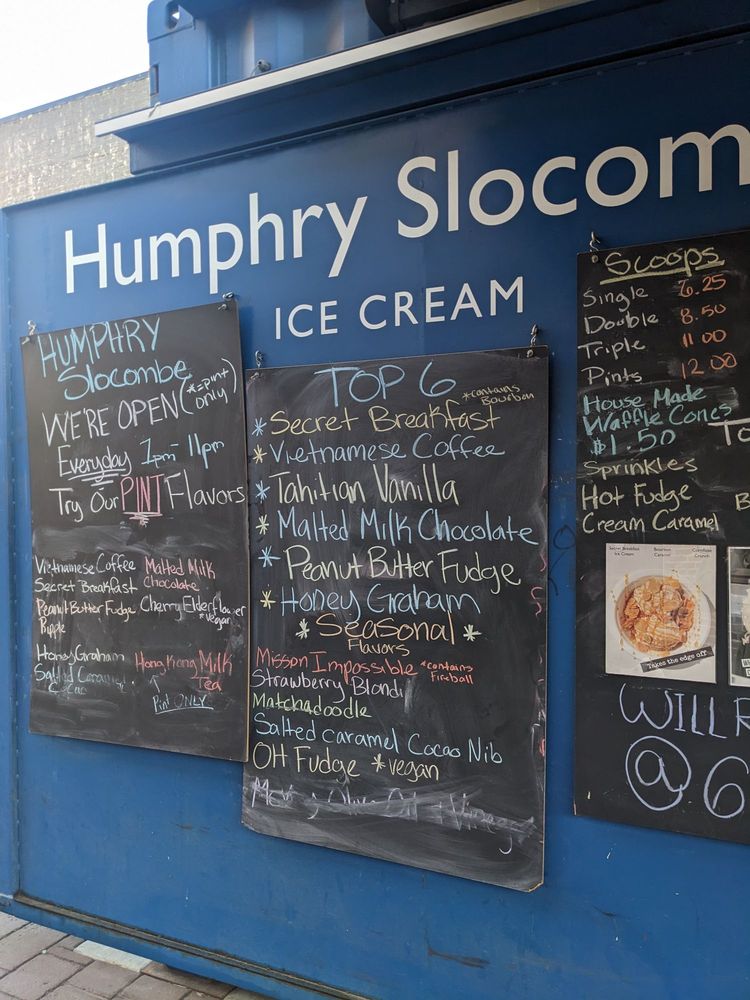 Humphry Slocom
ICE CREAM
HUMPHRY
Slocombe
WE'RE OPEN (*=pint only)
Everyday 1pm-11pm
Try Our PINT Flavors
Vietnamese Coffee
Secret Breakfast
Peanut Butter Fudge
Ripple
Honey Graham
Salted Caramel
Malted Milk
Chocolate
Cherry Elderflower
*vegan
Hong Kong Milk
Tea
Pint ONLY
TOP 6
*contains
Bourbon
* Secret Breakfast
* Vietnamese Coffee
* Tahitian Vanilla
* Malted Milk Chocolate
* Peanut Butter Fudge
* Honey Graham
* Seasonal *
Flavors
Misson Impossible *contains
fireball
Strawberry Blondi
Matchadoodle
Salted caramel Cocao Nib
OH Fudge *vegan
Scoops
Single 6.25
Double 8.50
Triple 11.00
Pints 12.00
House Made
Waffle Cones
$1.50
Sprinkles
Hot Fudge
Cream Caramel
Secret Breakfast
Ice Cream
Bourbon
Caramel
Cornflake
Crunch
Takes the edge off
WILL
@6